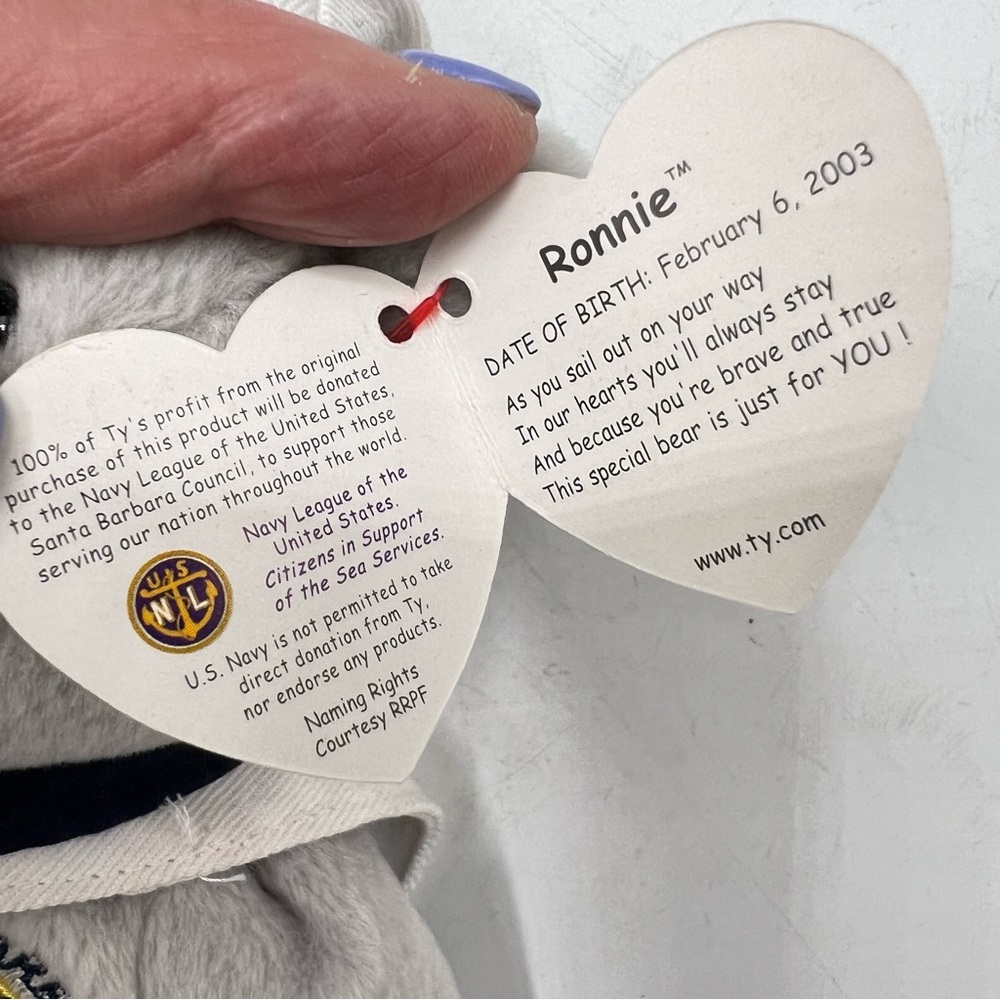 100% of Ty's profit from the original
purchase of this product will be donated
to the Navy League of the United States,
Santa Barbara Council, to support those
serving our nation throughout the world.
Navy League of the
United States.
Citizens in Support
of the Sea Services.
U S
N L
U.S. Navy is not permitted to take
direct donation from Ty,
nor endorse any products.
Naming Rights
Courtesy RRPF
Ronnie™
DATE OF BIRTH: February 6, 2003
As you sail out on your way
In our hearts you'll always stay
And because you're brave and true
This special bear is just for YOU !
www.ty.com